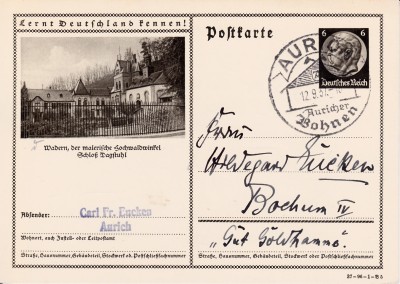 Lernt Deutschland kennen!
Wadern, der malerische Hochwaldwinkel
Schloß Dagstuhl
Absender:
Carl Fr.
Aurich
Wohnort, auch Zustell- oder Leitpostamt
Straße, Hausnummer, Gebäudeteil, Stockwerk od. Postschließfachnummer
Postkarte
6 6
Deutsches Reich
AUR
12.9.
Auricher
Bohnen
Frau
Hildegard Eucken
Bochum IV
"Gut Goldhamme".
Straße, Hausnummer, Gebäudeteil, Stockwerk oder Postschließfachnummer